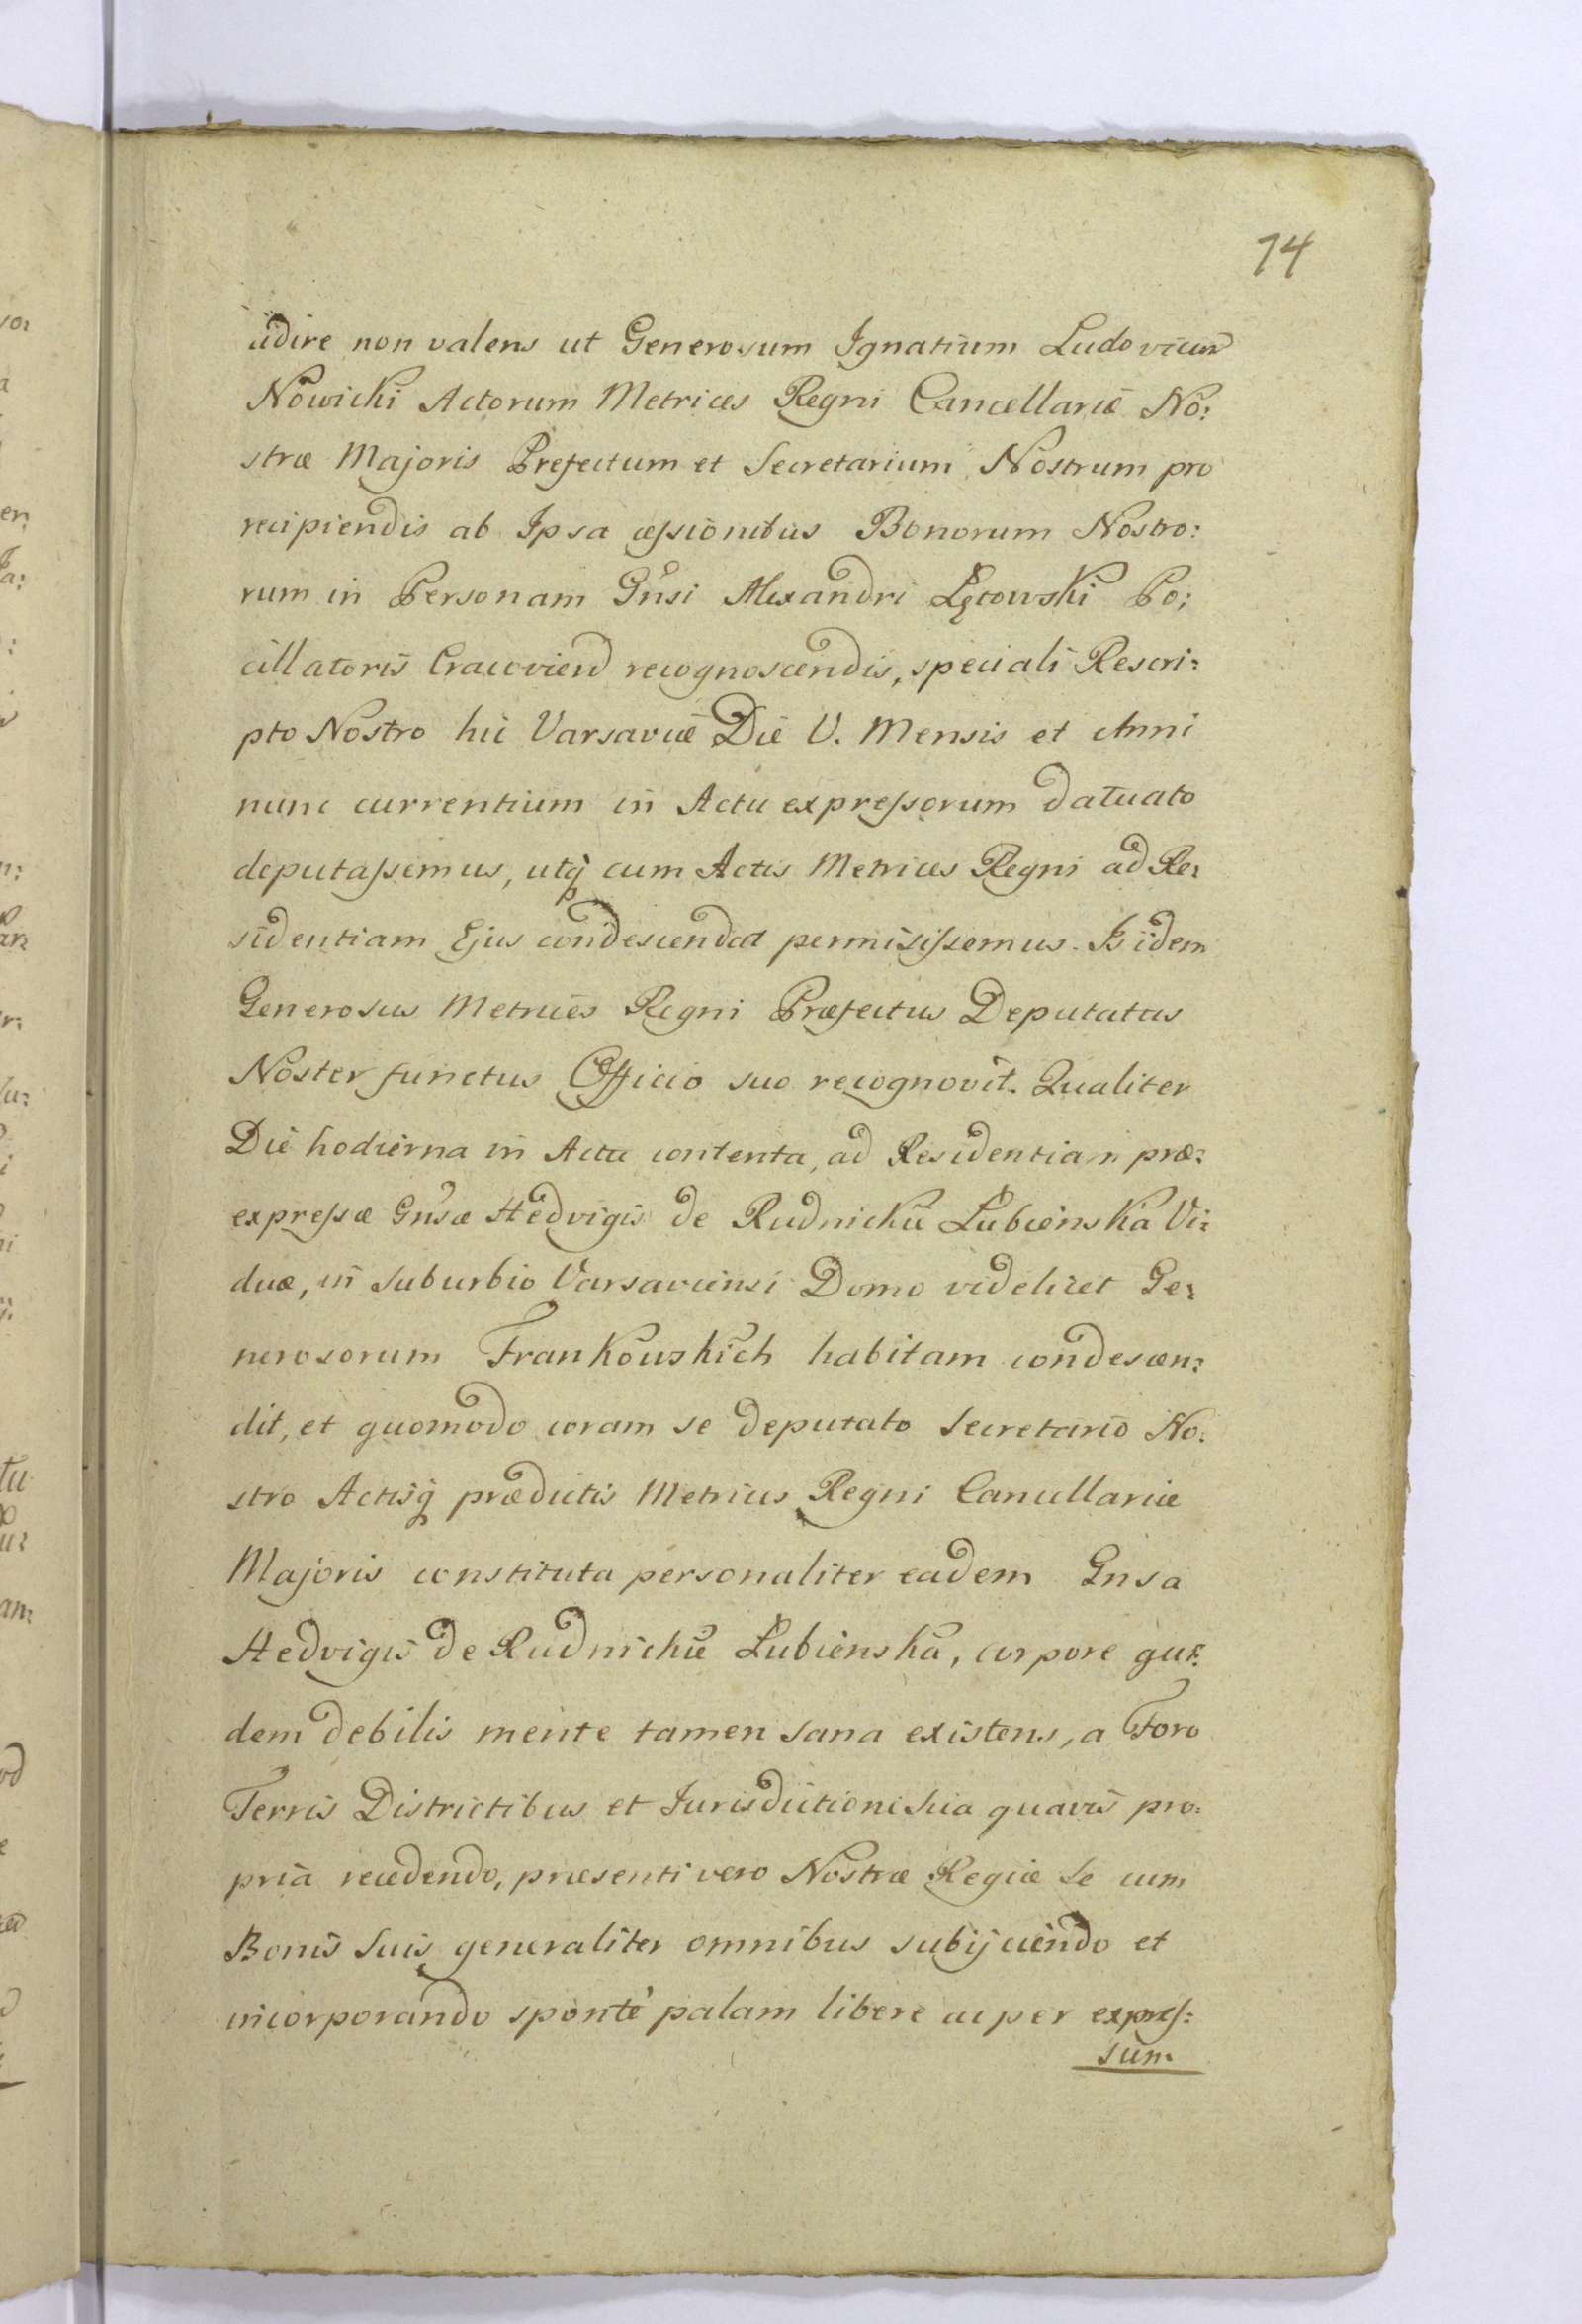 74
adire non valens ut Generosum Ignatium Ludovicum
Nowicki Actorum Metrices Regni Cancellariæ No:
stræ Majoris Prefectum et Secretarium Nostrum pro
recipiendis ab Ipsa cessionibus Bonorum Nostro:
rum in Personam Gnsi Alexandri Łętowski Po:
cillatoris Cracovien recognoscendis, speciali Rescri:
pto Nostro hic Varsaviæ Die V. Mensis et Anni
nunc currentium in Actu expressorum datuato
deputassemus, utq cum Actis Metrices Regni ad Re:
sidentiam Ejus condescendat permisissemus. Is idem
Generosus Metrices Regni Præfectus Deputatus
Noster functus Officio suo recognovit. Qualiter
Die hodierna in Actu contenta, ad Residentiam præ:
expressæ Gnsæ Hedvigis de Rudnickie Łubienska Vi:
duæ, in suburbio Varsaviensi Domo videlicet Ge:
nerosorum Frankowskich habitam condescen:
dit, et quomodo coram se deputato Secretario No:
stro Actisq prædictis Metrices Regni Cancellariæ
Majoris constituta personaliter eadem Gnsa
Hedvigis de Rudnickie Łubienska, corpore qui:
dem debilis mente tamen sana existens, a Foro
Terris Districtibus et Iurisdictioni sua quavis pro:
pria recedendo, præsenti vero Nostræ Regiæ se cum
Bonis suis generaliter omnibus subijciendo et
incorporando sponte palam libere ac per expres:
sum